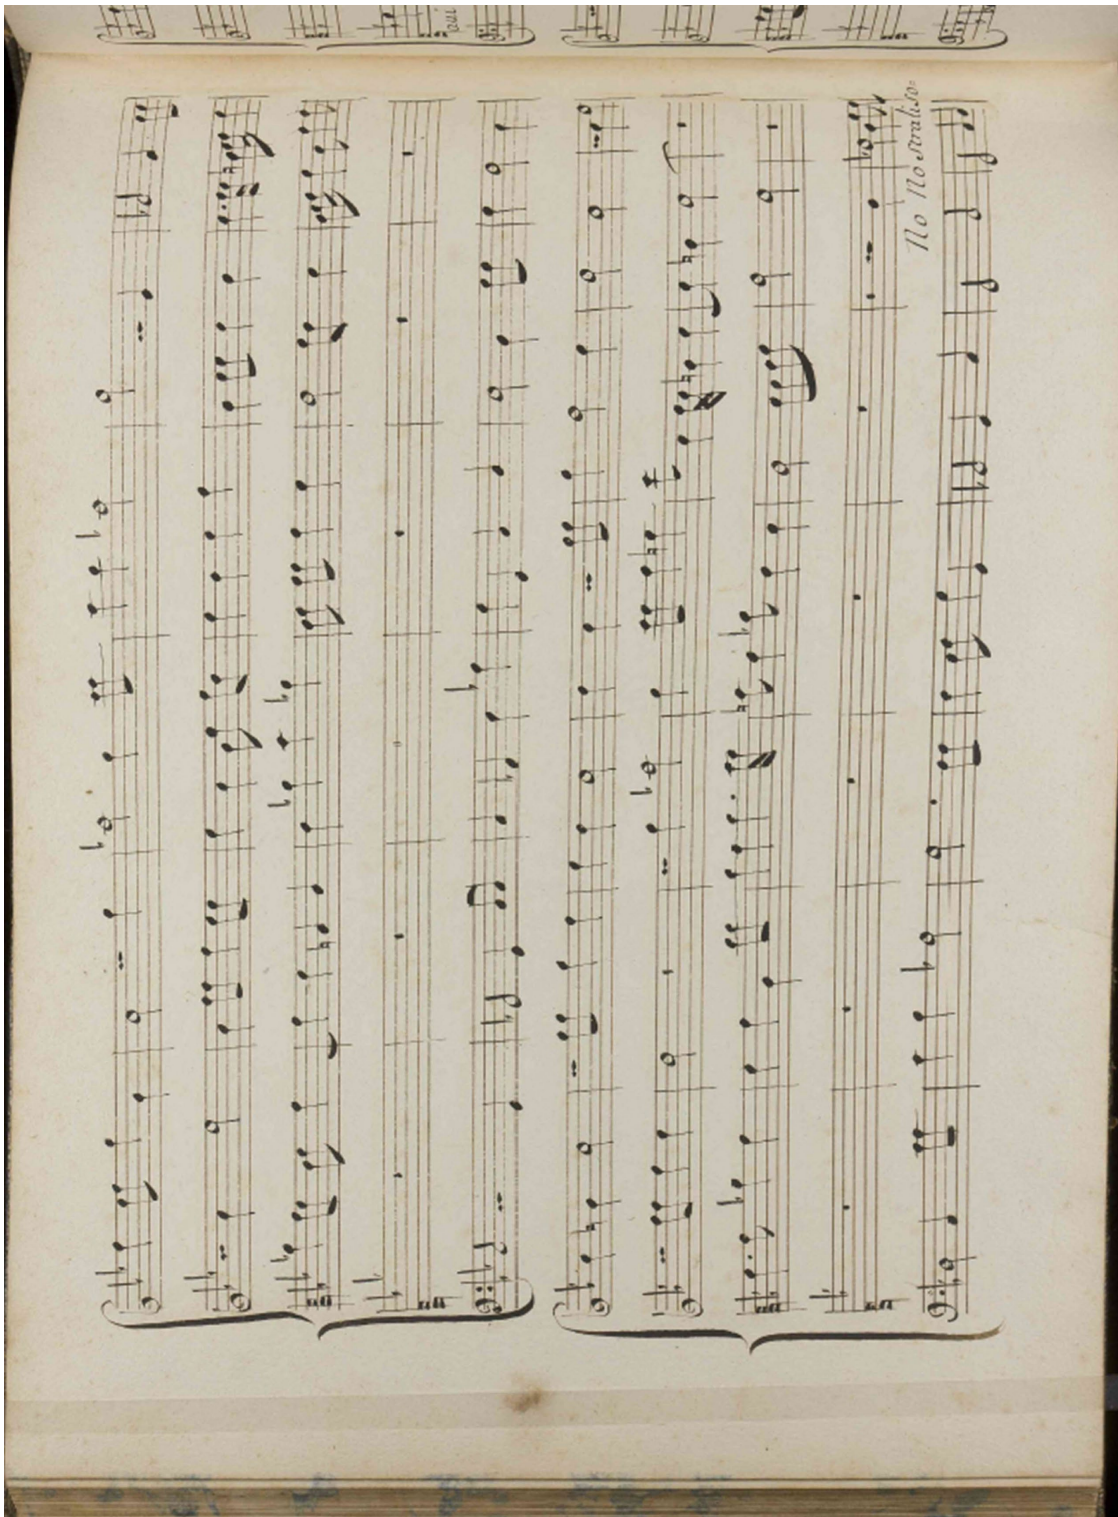 No No straliso=